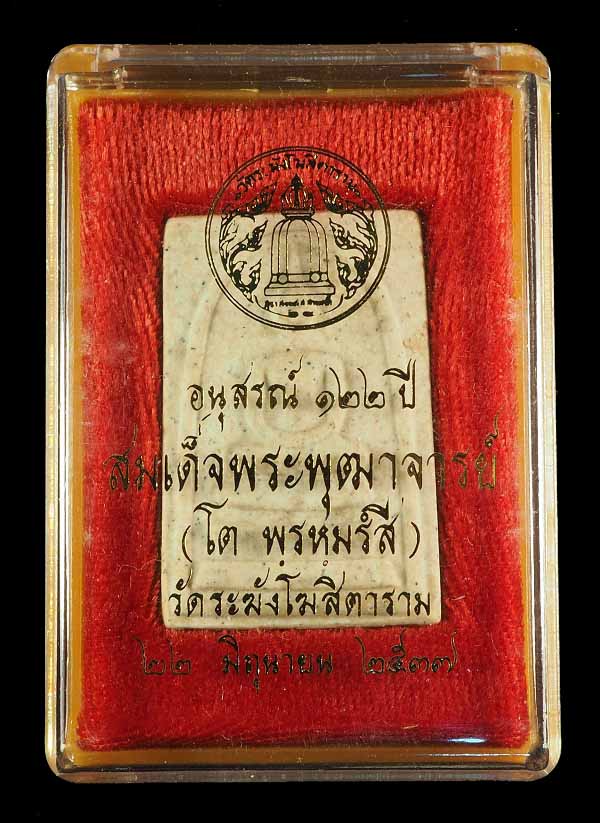 วัดระฆังโฆสิตาราม
อนุสรณ์ ๑๒๒ ปี
สมเด็จพระพุฒาจารย์
(โต พฺรหฺมรํสี)
วัดระฆังโฆสิตาราม
๒๒ มิถุนายน ๒๕๓๗